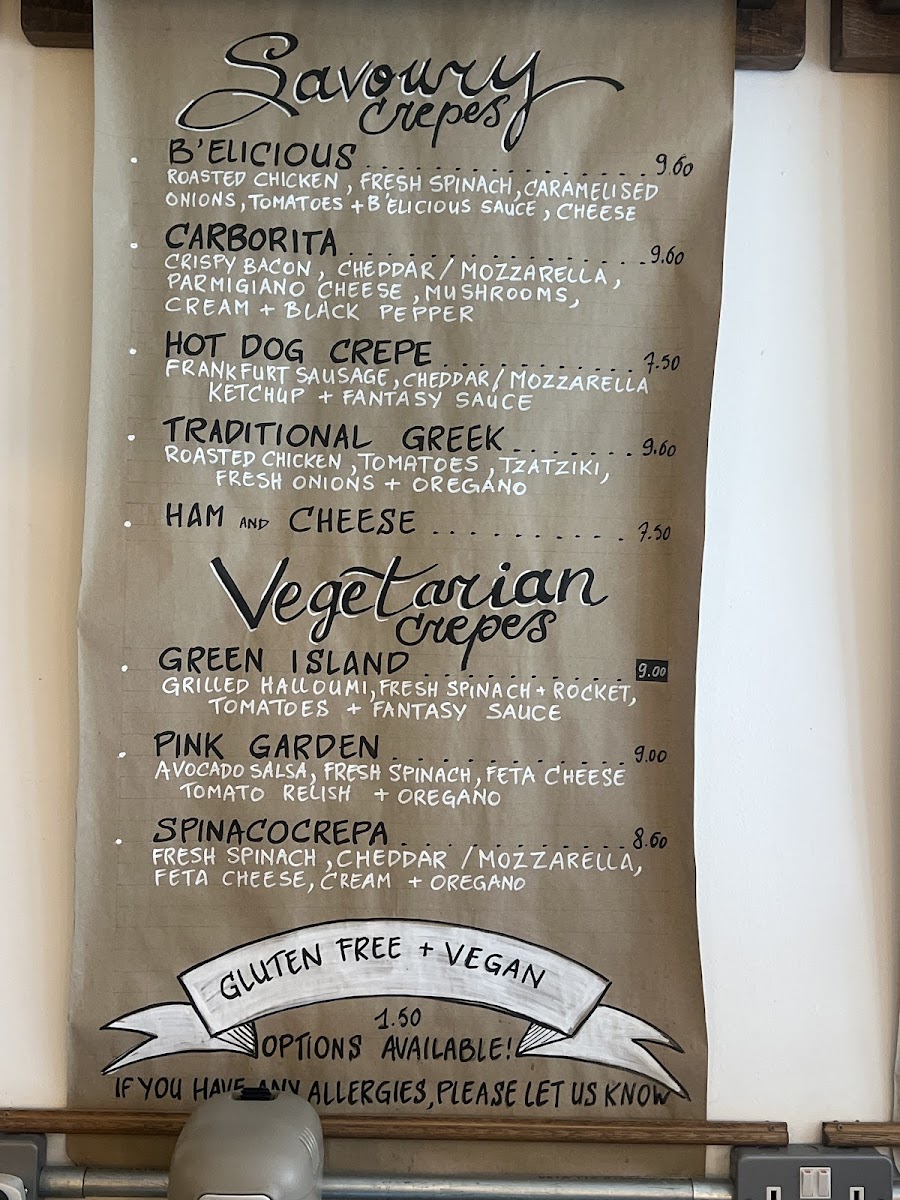 Savoury
crepes
B'ELICIOUS . . . . . . . . . . . . . . . . . 9.60
ROASTED CHICKEN, FRESH SPINACH, CARAMELISED
ONIONS, TOMATOES + B'ELICIOUS SAUCE, CHEESE
CARBORITA . . . . . . . . . . . . . . . . . 9.60
CRISPY BACON, CHEDDAR/MOZZARELLA,
PARMIGIANO CHEESE, MUSHROOMS,
CREAM + BLACK PEPPER
HOT DOG CREPE . . . . . . . . . . . 7.50
FRANKFURT SAUSAGE, CHEDDAR/MOZZARELLA
KETCHUP + FANTASY SAUCE
TRADITIONAL GREEK . . . . . . . 9.60
ROASTED CHICKEN, TOMATOES, TZATZIKI,
FRESH ONIONS + OREGANO
HAM AND CHEESE . . . . . . . . . . . 7.50
Vegetarian
crepes
GREEN ISLAND . . . . . . . . . . . . 9.00
GRILLED HALLOUMI, FRESH SPINACH + ROCKET,
TOMATOES + FANTASY SAUCE
PINK GARDEN . . . . . . . . . . . . . 9.00
AVOCADO SALSA, FRESH SPINACH, FETA CHEESE
TOMATO RELISH + OREGANO
SPINACOCREPA . . . . . . . . . . . . 8.60
FRESH SPINACH, CHEDDAR/MOZZARELLA,
FETA CHEESE, CREAM + OREGANO
GLUTEN FREE + VEGAN
1.50
OPTIONS AVAILABLE!
IF YOU HAVE ANY ALLERGIES, PLEASE LET US KNOW